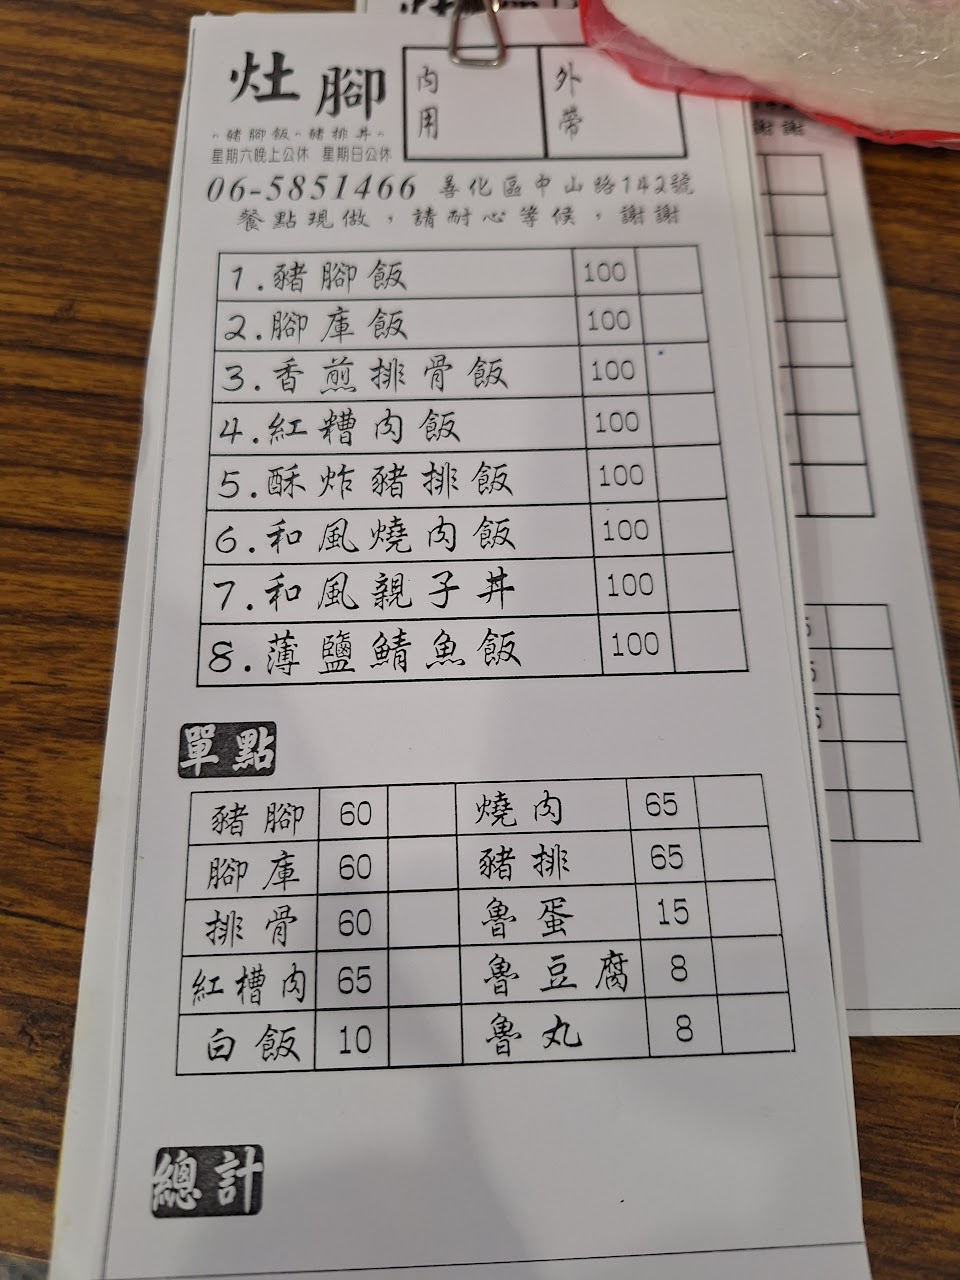 灶腳
內用
外帶
豬腳飯 豬排丼
星期六晚上公休 星期日公休
06-5851466 善化區中山路142號
餐點現做，請耐心等候，謝謝
1.豬腳飯 100
2.腳庫飯 100
3.香煎排骨飯 100
4.紅糟肉飯 100
5.酥炸豬排飯 100
6.和風燒肉飯 100
7.和風親子丼 100
8.薄鹽鯖魚飯 100
單點
豬腳 60 燒肉 65
腳庫 60 豬排 65
排骨 60 魯蛋 15
紅槽肉 65 魯豆腐 8
白飯 10 魯丸 8
總計
謝謝
5
5
5